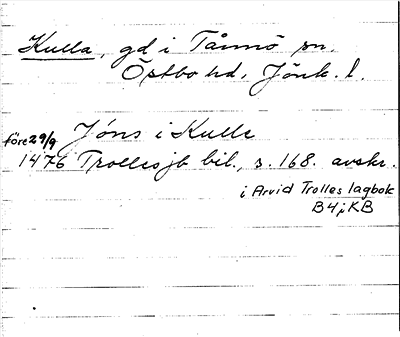 Kulla, gd i Tånnö sn,
Östbo hd, Jönk. l.
före 29/9 Jöns i Kulle
1476 Trollesjb bil., s. 168. avskr.
i Arvid Trolles lagbok
B4 i KB